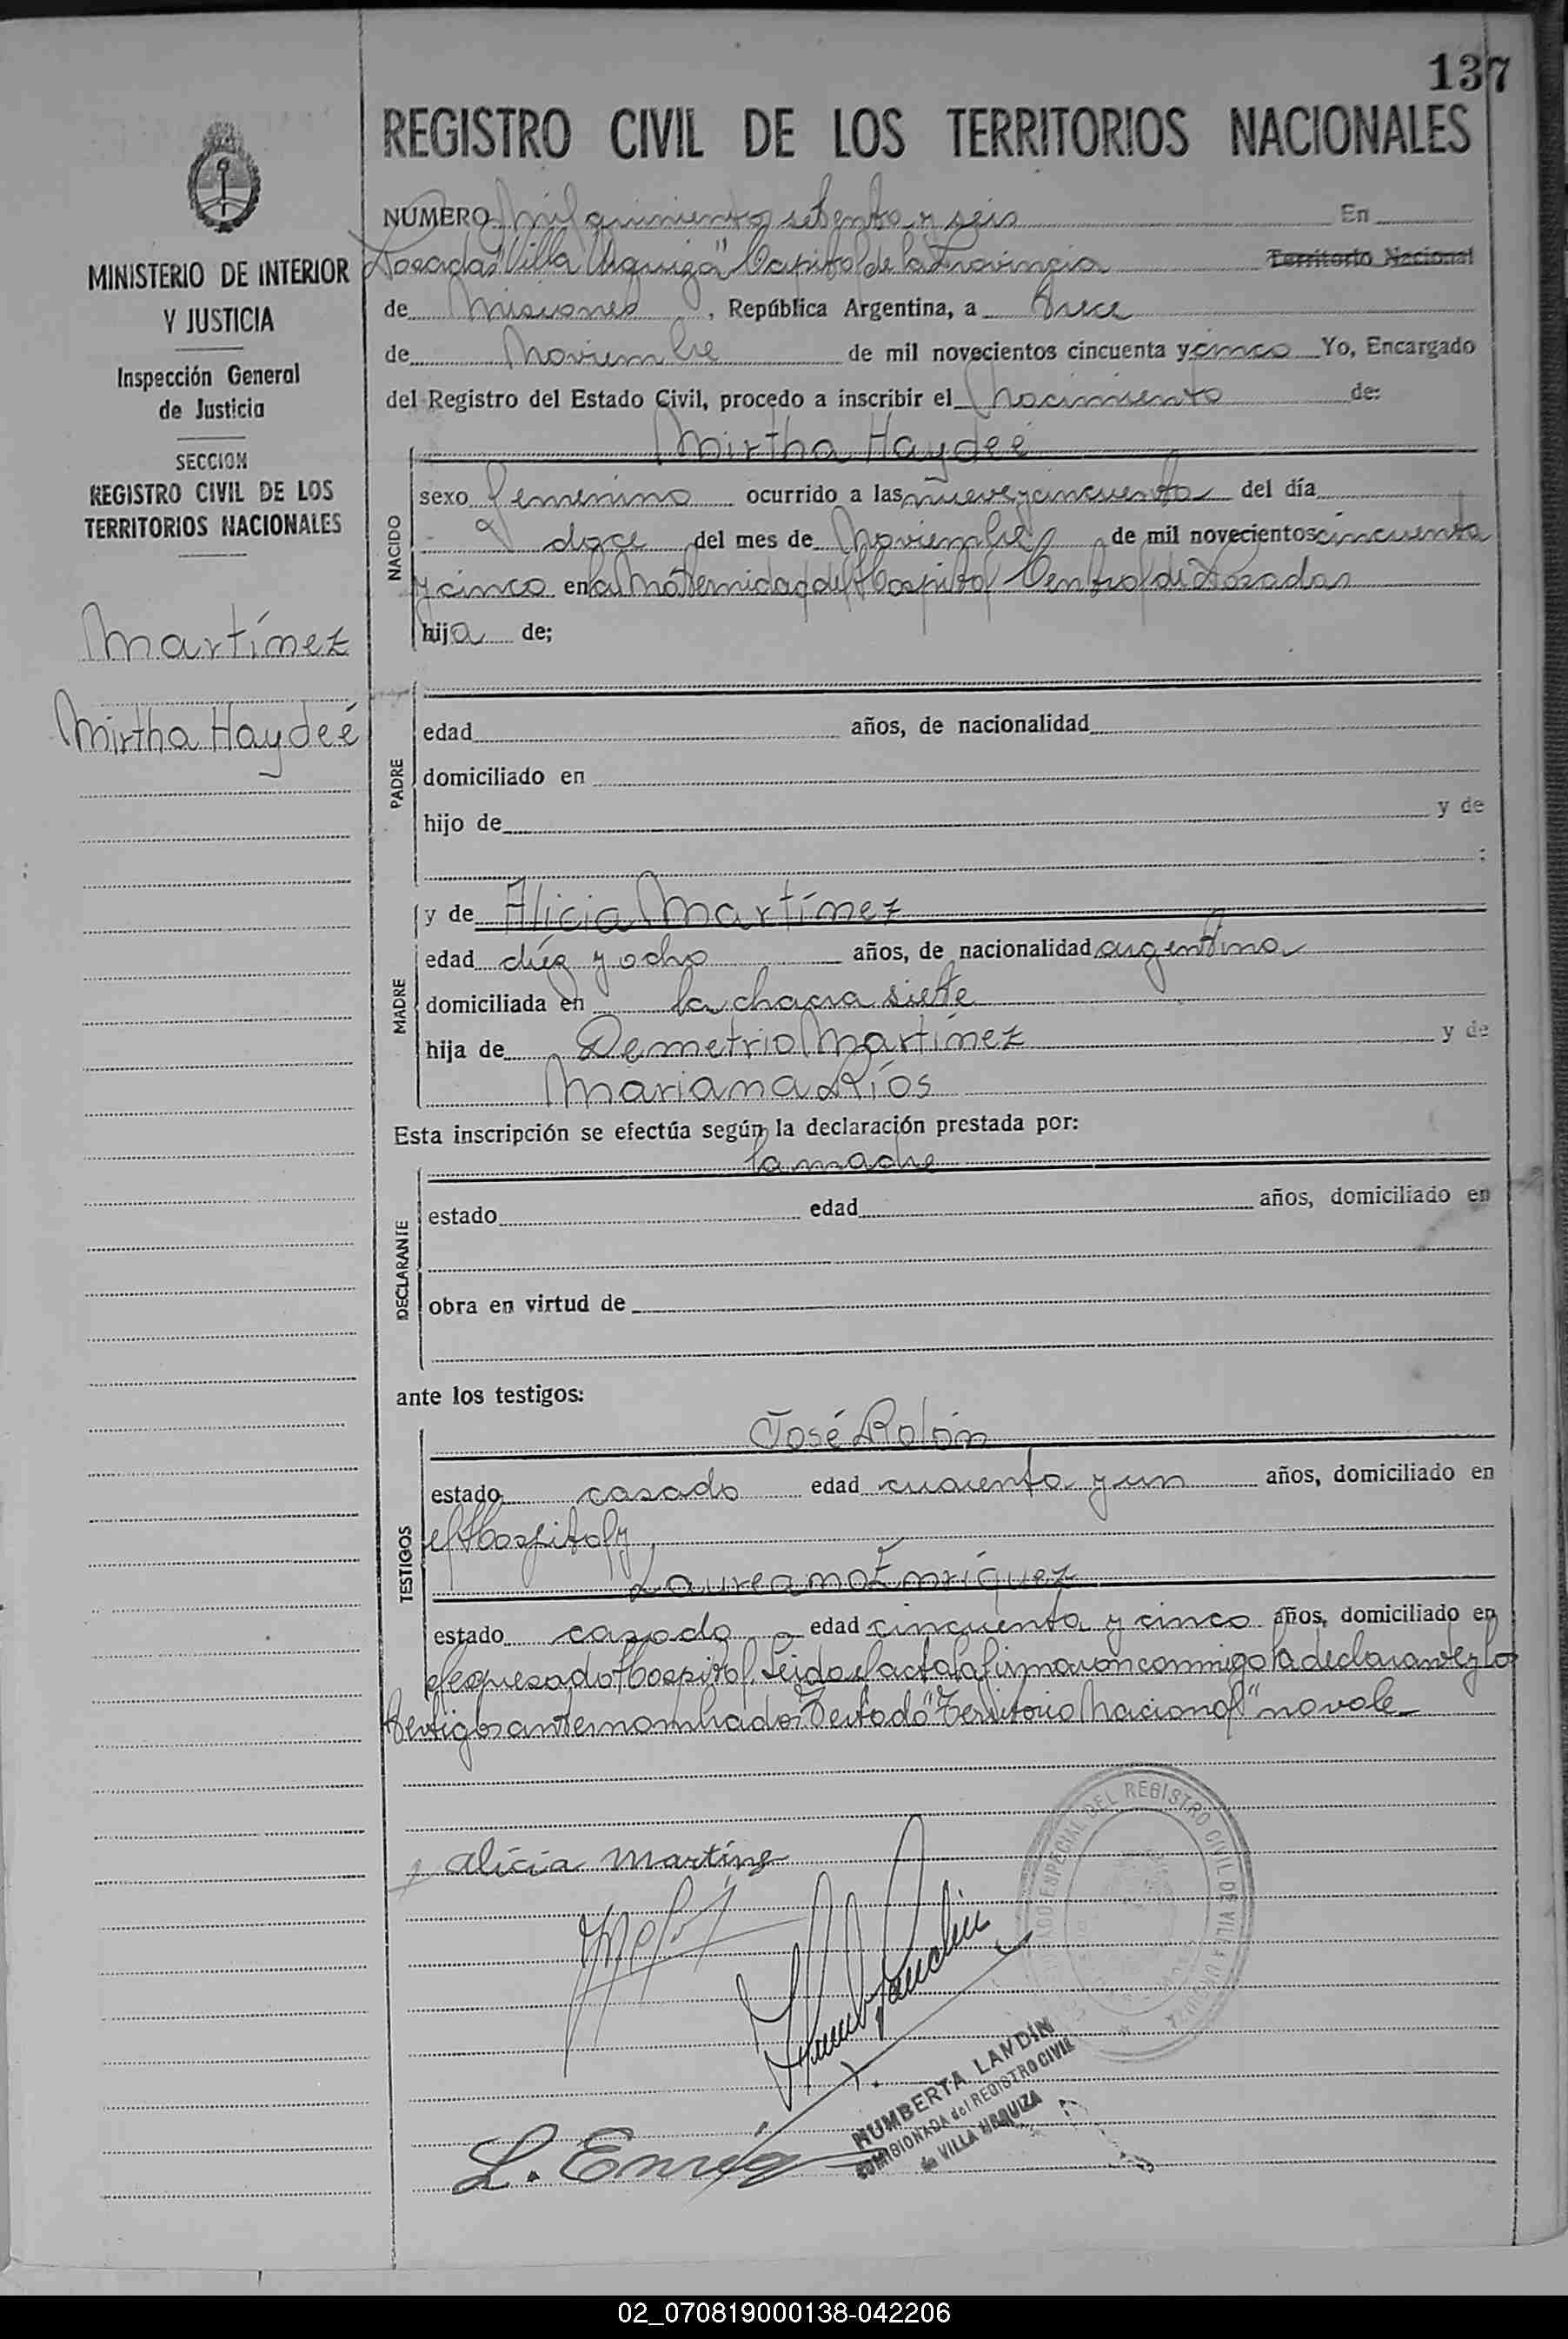 137
REGISTRO CIVIL DE LOS TERRITORIOS NACIONALES
MINISTERIO DE INTERIOR
Y JUSTICIA
Inspección General
de Justicia
SECCION
REGISTRO CIVIL DE LOS
TERRITORIOS NACIONALES
Martínez
Mirtha Haydeé
NUMERO Mil quinientos setenta y seis En
Posadas "Villa Urquiza" Capital de la Provincia Territorio Nacional
de Misiones, República Argentina, a trece
de Noviembre de mil novecientos cincuenta y cinco Yo, Encargado
del Registro del Estado Civil, procedo a inscribir el Nacimiento de:
Mirtha Haydeé
NACIDO
sexo femenino ocurrido a las nueve y cincuenta del día
doce del mes de Noviembre de mil novecientos cincuenta
y cinco en la Maternidad del Hospital Central de Posadas
hija de;
PADRE
edad años, de nacionalidad
domiciliado en
hijo de y de
;
MADRE
y de Alicia Martínez
edad diéz y ocho años, de nacionalidad argentina
domiciliada en la chacra siete
hija de Demetrio Martínez y de
Mariana Ríos
Esta inscripción se efectúa según la declaración prestada por:
la madre
DECLARANTE
estado edad años, domiciliado en
obra en virtud de
ante los testigos:
José Rolón
TESTIGOS
estado casado edad cuarenta y un años, domiciliado en
el Hospital y
Laureano Enríquez
estado casado edad cincuenta y cinco años, domiciliado en
el expresado Hospital. Leida el acta la firmaron conmigo la declarante y los
testigos antes nombrados Testado "Territorio Nacional" no vale
Alicia Martinez
L. Enriq
DEL REGISTRO CIVIL DE VILLA URQUIZA
HUMBERTA LANDÍN
COMISIONADA del REGISTRO CIVIL
de VILLA URQUIZA
02_070819000138-042206